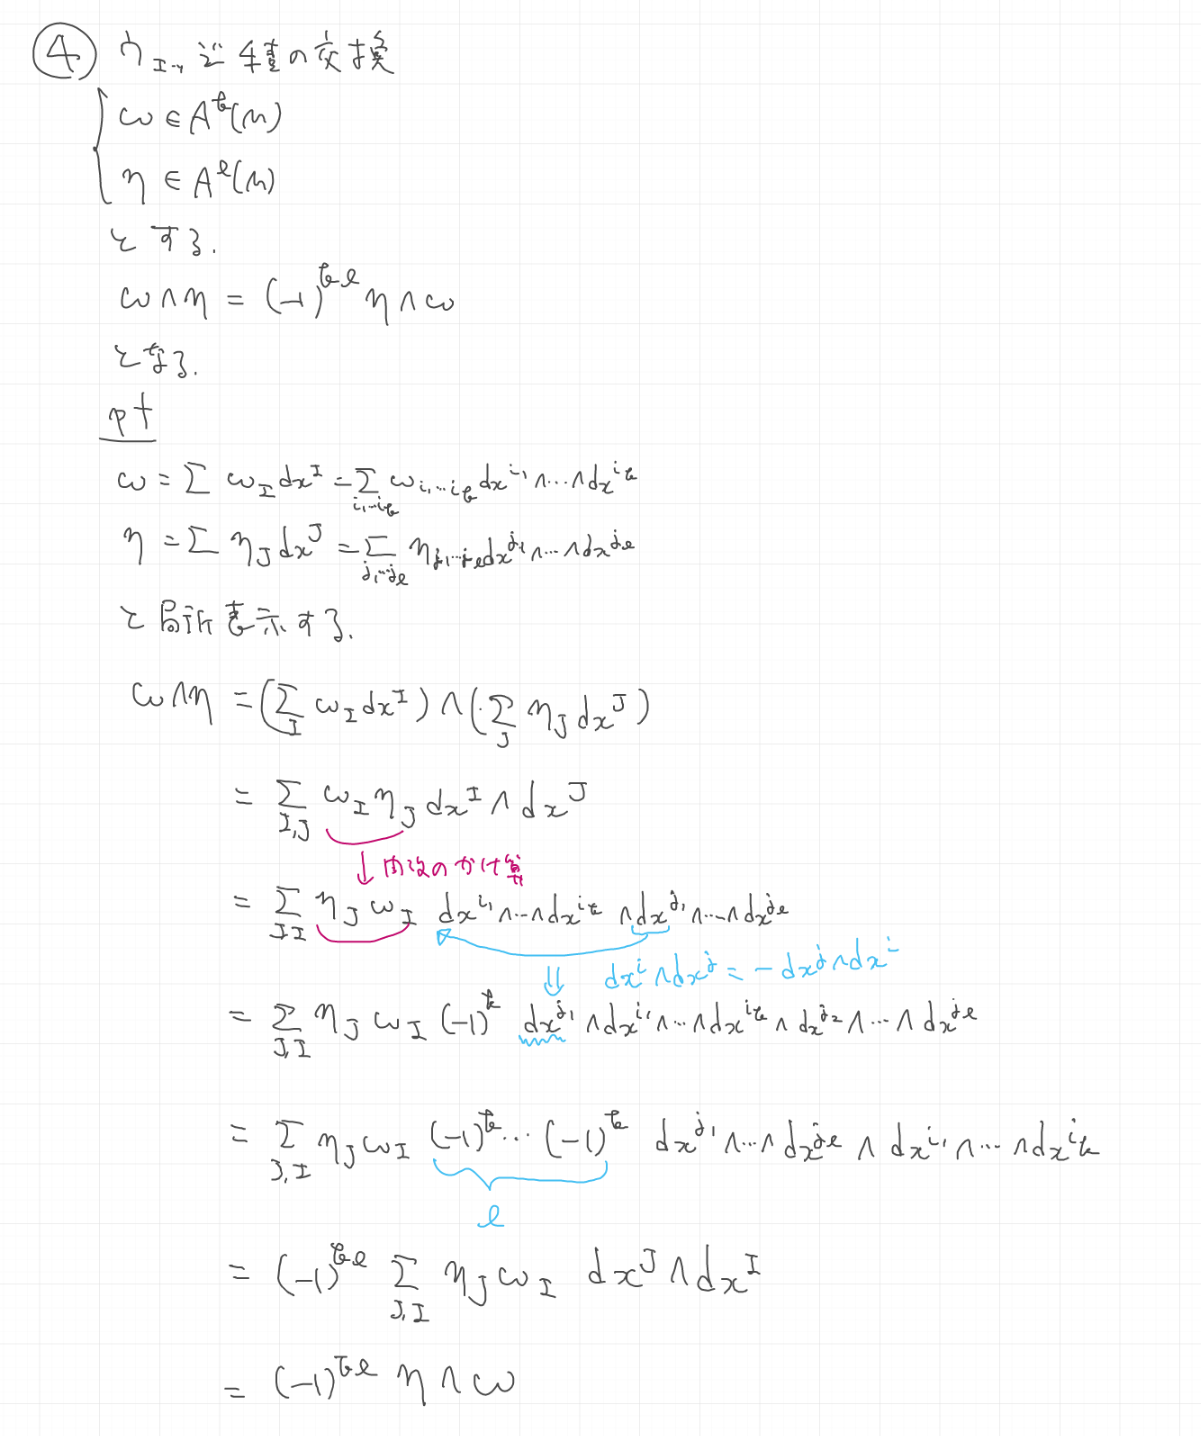 ④ ウェッジ積の交換
ω ∈ A^k(M)
η ∈ A^l(M)
とする.
ω∧η = (-1)^{kl} η∧ω
となる.
pf
ω = Σ ω_I dx^I = Σ_{i_1…i_k} ω_{i_1…i_k} dx^{i_1}∧…∧dx^{i_k}
η = Σ η_J dx^J = Σ_{j_1…j_l} η_{j_1…j_l} dx^{j_1}∧…∧dx^{j_l}
と局所表示する.
ω∧η = (Σ_I ω_I dx^I)∧(Σ_J η_J dx^J)
= Σ_{I,J} ω_I η_J dx^I∧dx^J
↓関数のかけ算
= Σ_{J,I} η_J ω_I dx^{i_1}∧…∧dx^{i_k}∧dx^{j_1}∧…∧dx^{j_l}
⇓ dx^i∧dx^j = -dx^j∧dx^i
= Σ_{J,I} η_J ω_I (-1)^k dx^{j_1}∧dx^{i_1}∧…∧dx^{i_k}∧dx^{j_2}∧…∧dx^{j_l}
= Σ_{J,I} η_J ω_I (-1)^k…(-1)^k dx^{j_1}∧…∧dx^{j_l}∧dx^{i_1}∧…∧dx^{i_k}
l
= (-1)^{kl} Σ_{J,I} η_J ω_I dx^J∧dx^I
= (-1)^{kl} η∧ω